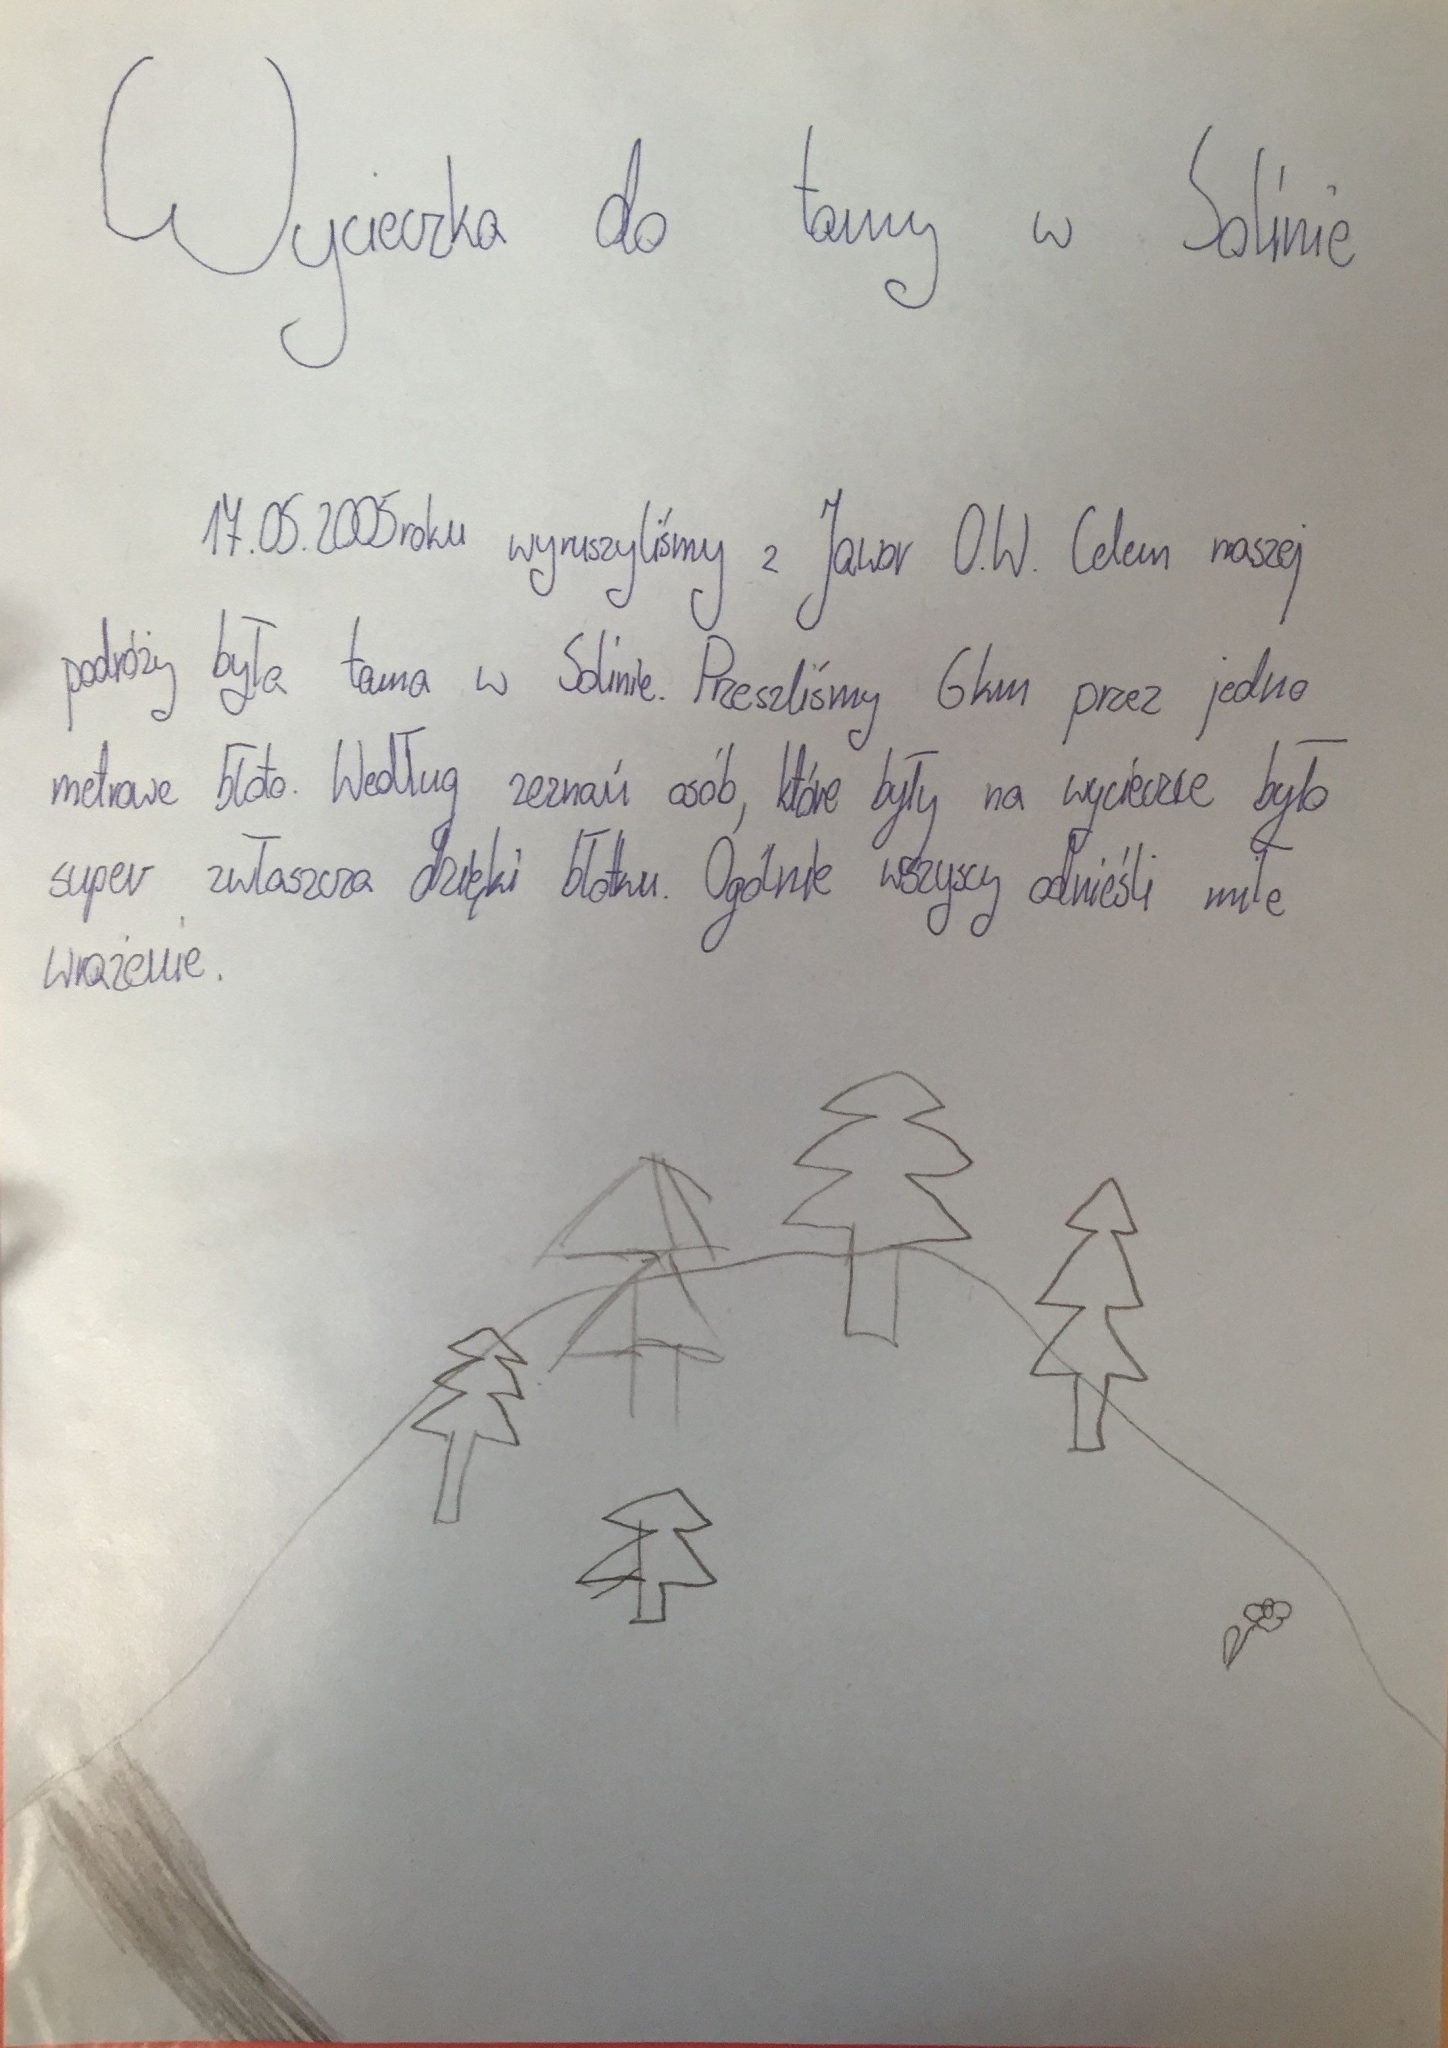 Wycieczka do tamy w Solinie
17.05.2005 roku wyruszyliśmy z Jawor O.W. Celem naszej
podróży była tama w Solinie. Przeszliśmy 6 km przez jedno
metrowe błoto. Według zeznań osób, które były na wycieczce było
super zwłaszcza dzięki błotku. Ogólnie wszyscy odnieśli miłe
wrażenie.